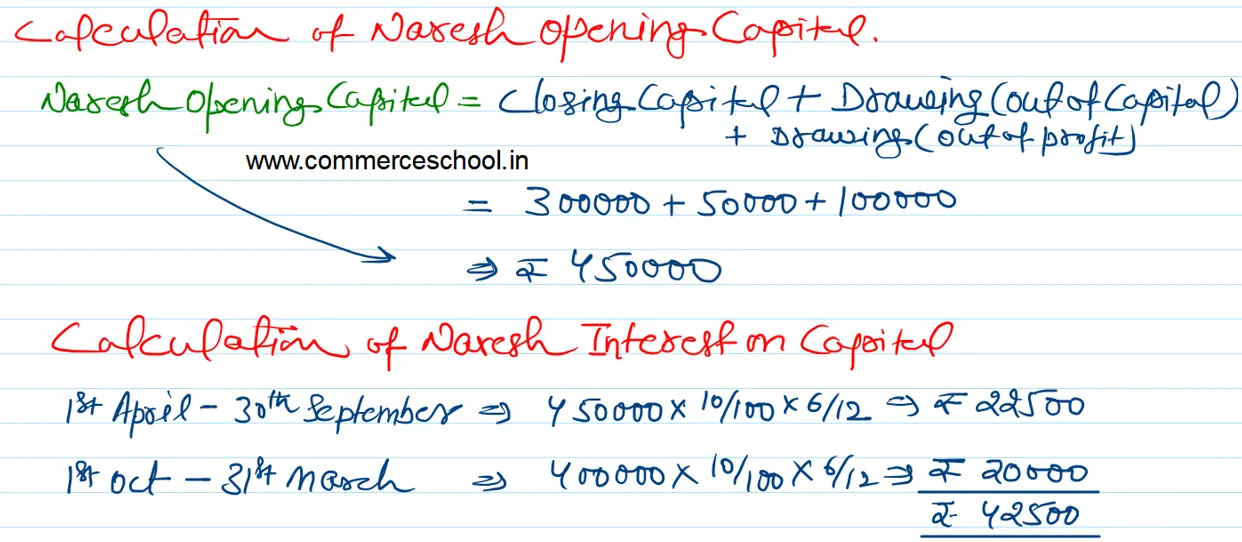 Calculation of Naresh Opening Capital.
Naresh Opening Capital = Closing Capital + Drawing (out of Capital)
+ Drawing (out of profit)
www.commerceschool.in
= 300000 + 50000 + 100000
⇒ ₹ 450000
Calculation of Naresh Interest on Capital
1st April - 30th September ⇒ 450000 × 10/100 × 6/12 ⇒ ₹ 22500
1st Oct - 31st March ⇒ 400000 × 10/100 × 6/12 ⇒ ₹ 20000
₹ 42500